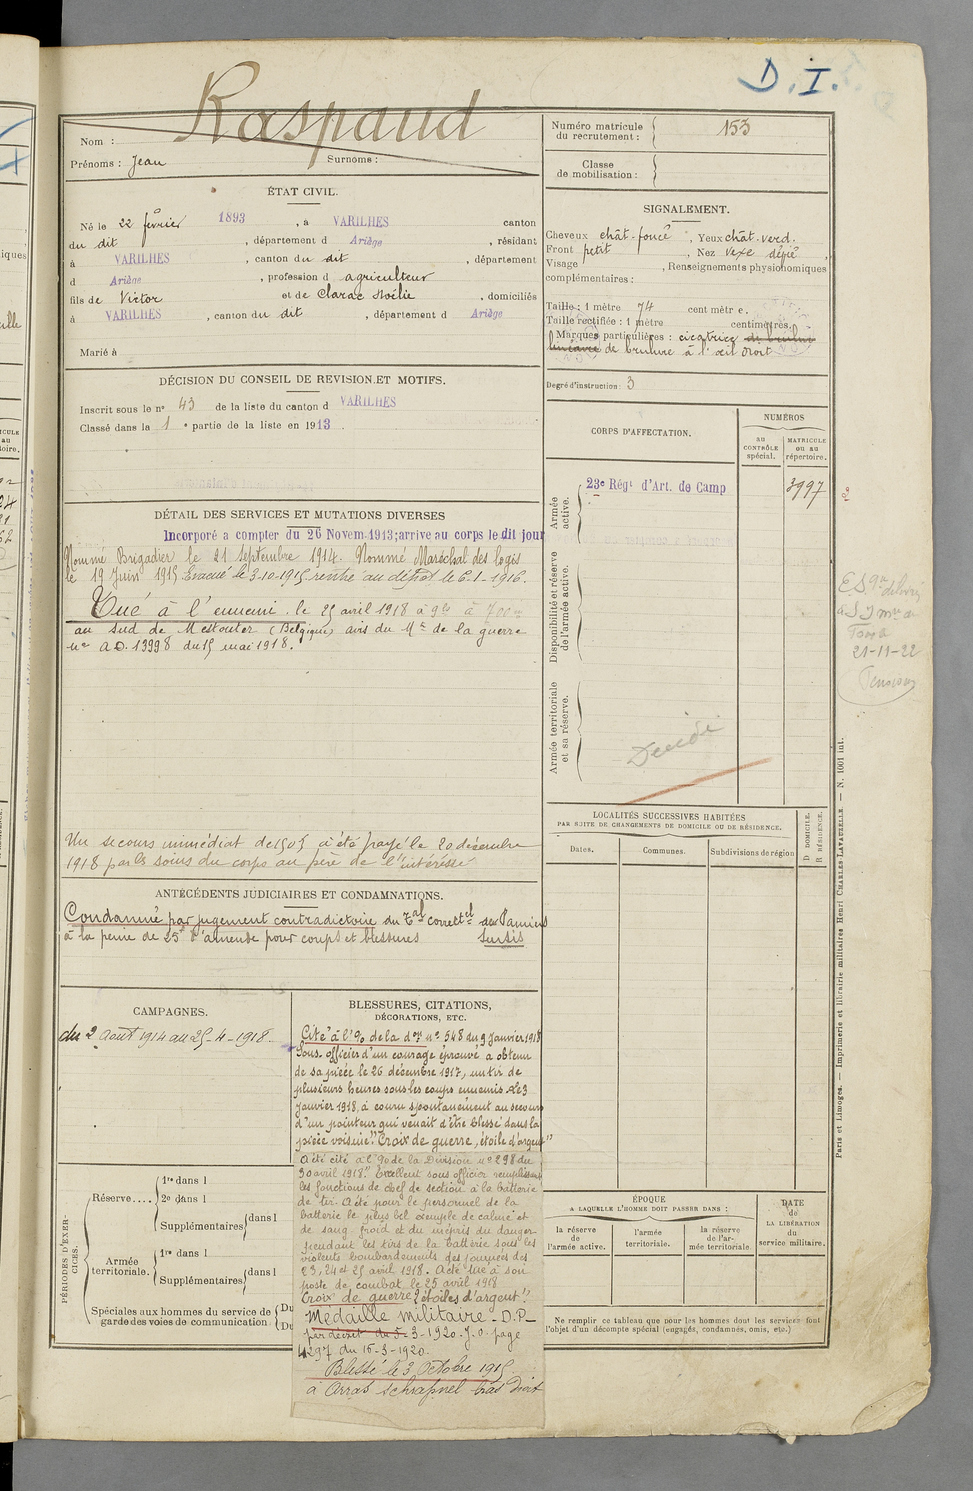 D. I.
Raspaud
Nom :
Prénoms : Jean Surnoms :
Numéro matricule du recrutement : 153
Classe de mobilisation :
ÉTAT CIVIL.
Né le 22 février 1893, à VARILHES canton
du dit, département d Ariège, résidant
à VARILHES, canton du dit, département
d Ariège, profession d agriculteur
fils de Victor et de Clarac Noélie, domiciliés
à VARILHES, canton du dit, département d Ariège
Marié à
SIGNALEMENT.
Cheveux chât-foncé, Yeux chât-verd.
Front petit, Nez vexe
Visage , Renseignements physionomiques
complémentaires :
Taille : 1 mètre 74 centimètre.
Taille rectifiée : 1 mètre centimètres.
Marques particulières : cicatrice de brulure
linéaire de brulure à l'œil droit
Degré d'instruction : 3
DÉCISION DU CONSEIL DE REVISION ET MOTIFS.
Inscrit sous le n° 43 de la liste du canton d VARILHES
Classé dans la 1e partie de la liste en 1913.
CORPS D'AFFECTATION.
NUMÉROS
AU CONTRÔLE spécial.
MATRICULE ou au répertoire.
Armée active.
23e Régt d'Art. de Camp 3997
Disponibilité et réserve de l'armée active.
Armée territoriale et sa réserve.
Décédé
DÉTAIL DES SERVICES ET MUTATIONS DIVERSES
Incorporé a compter du 26 Novem. 1913; arrive au corps le dit jour
Nommé Brigadier le 21 Septembre 1914. Nommé Maréchal des logis
le 19 Juin 1915 Evacué le 3-10-1915 rentré au dépôt le 6-1-1916.
Tué à l'ennemi. le 25 avril 1918 à 9h à 700m
au sud de Mestouter (Belgique) avis du Mre de la guerre
n° A.D. 13998 du 15 mai 1918.
Un secours immédiat de 150f a été payé le 20 décembre
1918 par les soins du corps au père de l'intéressé
ANTÉCÉDENTS JUDICIAIRES ET CONDAMNATIONS.
Condamné par jugement contradictoire du Tal correctel de Pamiers
à la peine de 25f d'amende pour coups et blessures Sursis
LOCALITÉS SUCCESSIVES HABITÉES
PAR SUITE DE CHANGEMENTS DE DOMICILE OU DE RÉSIDENCE.
Dates.
Communes.
Subdivisions de région
D DOMICILE.
R RÉSIDENCE.
CAMPAGNES.
du 2 Août 1914 au 25-4-1918.
BLESSURES, CITATIONS,
DÉCORATIONS, ETC.
Cité à l'o/o de la don n° 548 du 9 Janvier 1918
Sous officier d'un courage éprouvé a obtenu
de sa pièce le 26 décembre 1917, un tir de
plusieurs heures sous les coups ennemis. Le 3
Janvier 1918, a couru spontanément au secours
d'un pointeur qui venait d'être blessé dans la
pièce voisine." Croix de guerre, étoile d'argent"
A été cité à l'o/o de la Division n° 298 du
30 avril 1918." Excellent sous officier remplissant
les fonctions de chef de section à la batterie
de tir. A été pour le personnel de la
batterie le plus bel exemple de calme et
de sang froid et du mépris du danger
pendant les tirs de la batterie sous les
violents bombardements des journées des
23, 24 et 25 avril 1918. A été tué à son
poste de combat le 25 avril 1918
Croix de guerre 2 étoiles d'argent"
Médaille militaire - D.P-
par décret du 5-3-1920. J.O. page
4297 du 16-3-1920.
Blessé le 3 Octobre 1915
à Arras schrapnel bras droit
PÉRIODES D'EXERCICES.
Réserve....
1re dans l
2e dans l
Supplémentaires dans l
Armée territoriale.
1re dans l
Supplémentaires dans l
Spéciales aux hommes du service de garde des voies de communication
Du
Du
ÉPOQUE
A LAQUELLE L'HOMME DOIT PASSER DANS :
la réserve de l'armée active.
l'armée territoriale.
la réserve de l'armée territoriale.
DATE de LA LIBÉRATION du service militaire.
Ne remplir ce tableau que pour les hommes dont les services font
l'objet d'un décompte spécial (engagés, condamnés, omis, etc.)
21-11-22
Pensions
Paris et Limoges. — Imprimerie et librairie militaires Henri CHARLES-LAVAUZELLE. — N. 1001 int.